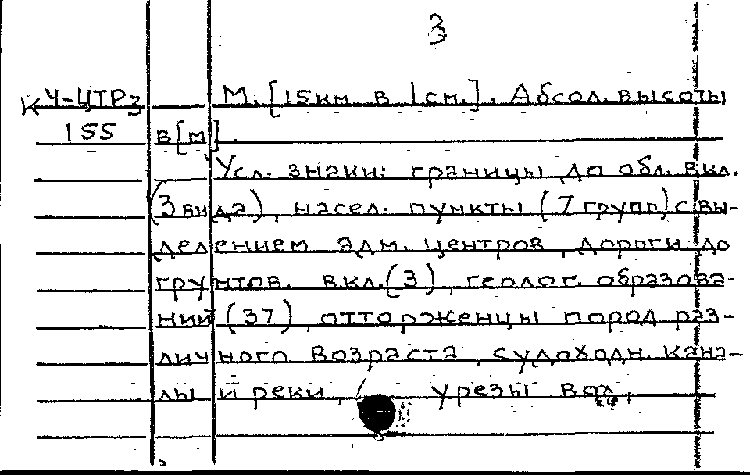 3
К Ч-ЦТР3 М. [15км. в 1см.]. Абсол. высоты
155 в [м].
Усл. знаки: границы до обл. вкл.
(3 вида), насел. пункты (7 групп) с вы-
делением адм. центров, дороги до
грунтов. вкл. (3), геолог. образова-
ний (37), отторженцы пород раз-
личного возраста, судоходн. кана-
лы и реки, урезы вод,